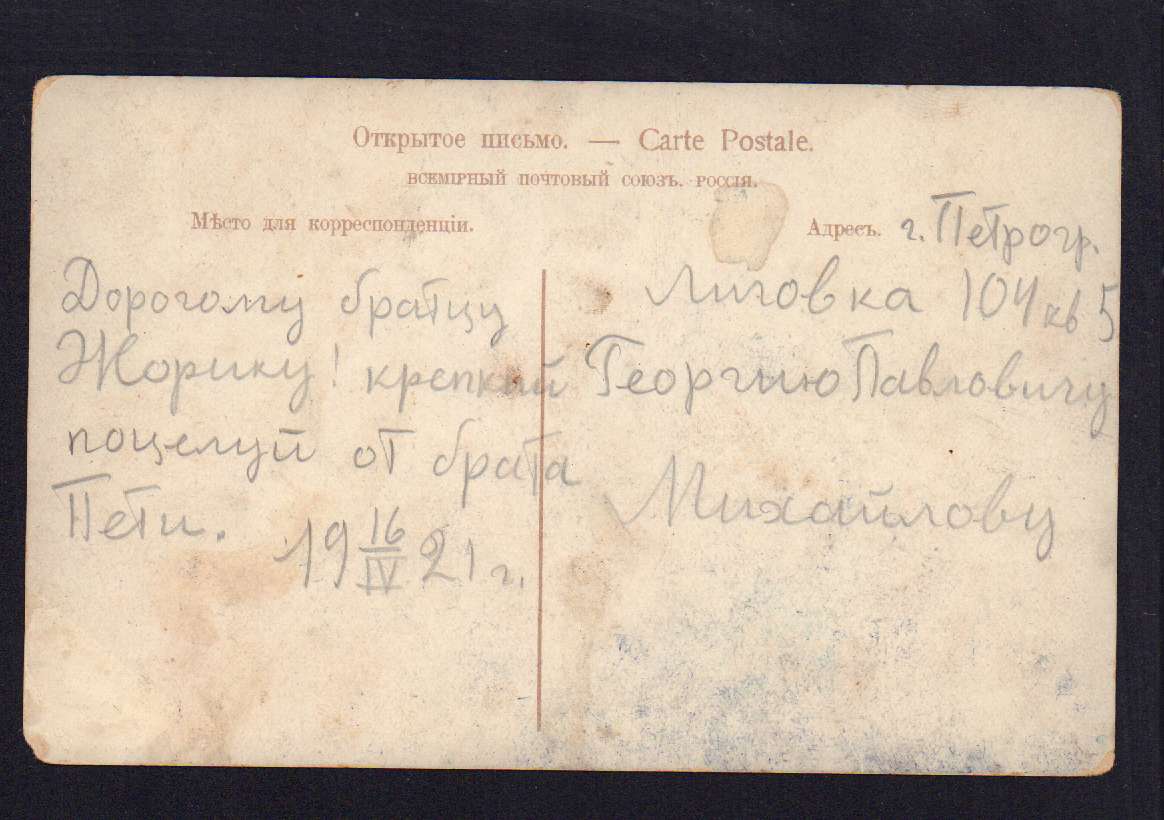 Открытое письмо. — Carte Postale.
ВСЕМІРНЫЙ ПОЧТОВЫЙ СОЮЗЪ. РОССІЯ.
Мѣсто для корреспонденціи.
Дорогому братцу
Жорику! крепкий
поцелуй от брата
Пети.
19 16/IV 21 г.
Адресъ. г. Петрогр.
Лиговка 104 кв 5
Георгию Павловичу
Михайлову